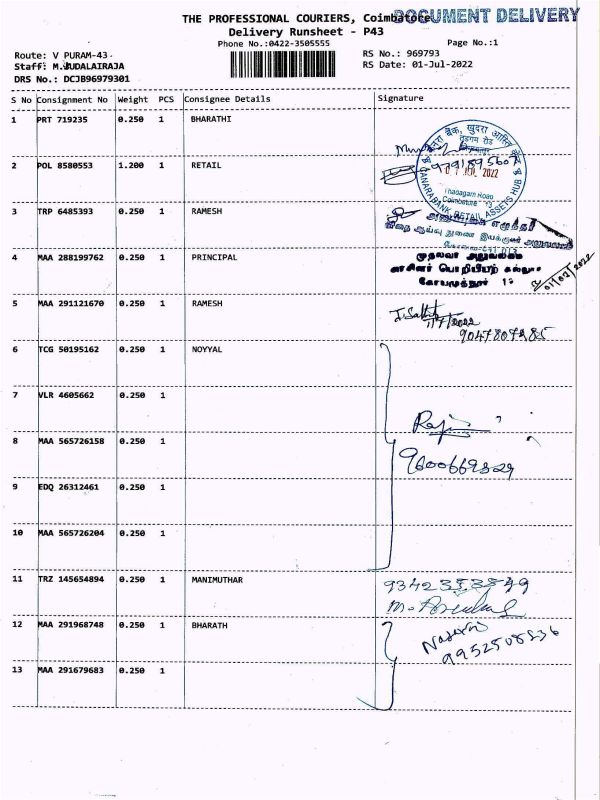 THE PROFESSIONAL COURIERS, Coimbatore
DOCUMENT DELIVERY
Delivery Runsheet - P43
Phone No.:0422-3505555
Page No.:1
Route: V PURAM-43
RS No.: 969793
Staff: M.SUDALAIRAJA
RS Date: 01-Jul-2022
DRS No.: DCJB96979301
S No Consignment No Weight PCS Consignee Details Signature
1 PRT 719235 0.250 1 BHARATHI
2 POL 8580553 1.200 1 RETAIL
JUL 2022
Thadagam Road
Coimbatore
CANARA BANK RETAIL ASSETS HUB
3 TRP 6485393 0.250 1 RAMESH
4 MAA 288199762 0.250 1 PRINCIPAL
முதல்வர் அலுவலகம்
5 MAA 291121670 0.250 1 RAMESH
1/7/2022
9047807285
6 TCG 50195162 0.250 1 NOYYAL
7 VLR 4605662 0.250 1
8 MAA 565726158 0.250 1
9600669829
9 EDQ 26312461 0.250 1
10 MAA 565726204 0.250 1
11 TRZ 145654894 0.250 1 MANIMUTHAR
12 MAA 291968748 0.250 1 BHARATH
9952508836
13 MAA 291679683 0.250 1